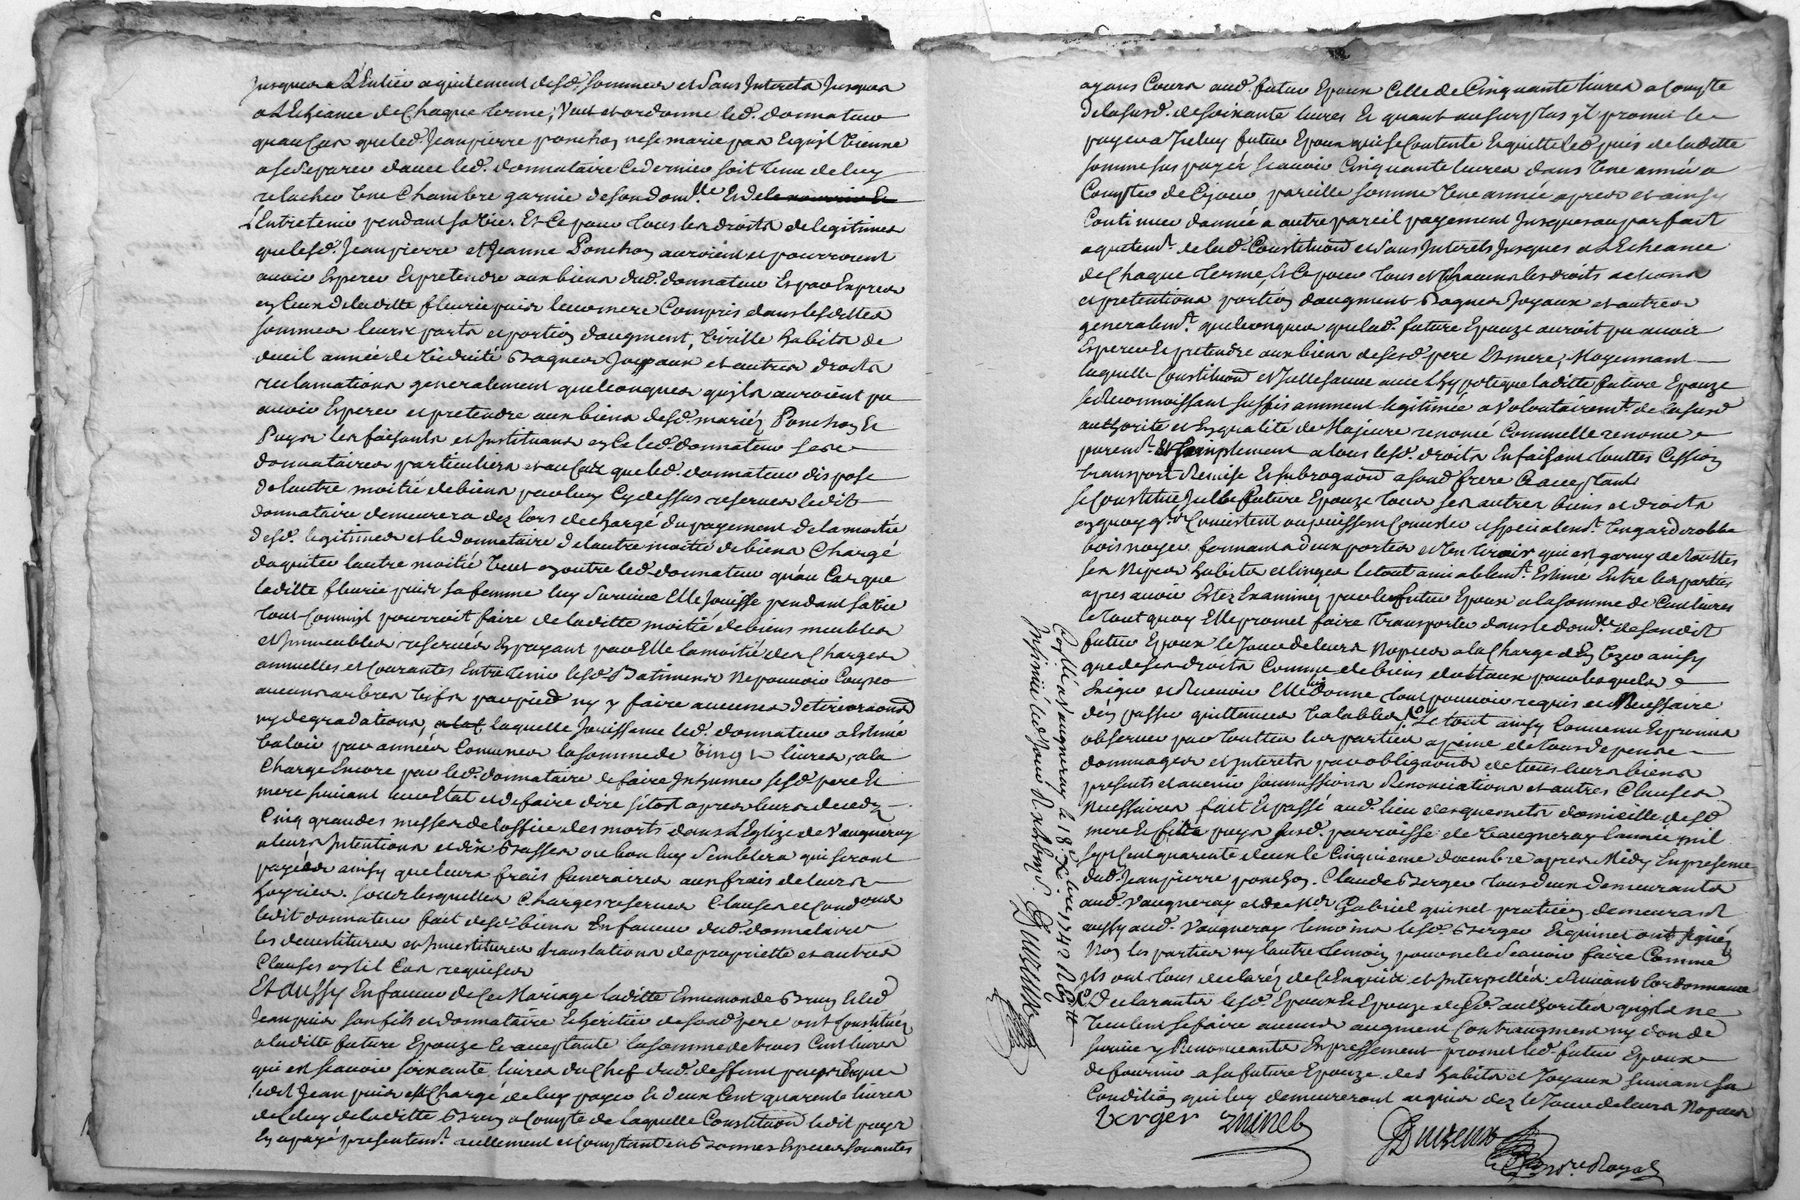 Jusques a L'Entier aquitement desd. sommes et sans Interets Jusques
a L'Echeance de Chaque terme; Veut et ordonne led. donnateur
quau Cas que led. Jean pierre ponchon ne se marie pas Et quil Vienne
a se separer davec led. donnataire Ce dernier soit tenu de luy
relacher Une Chambre garnie de son domlle Et de le nourrir Et
L'Entretenir pendant sa Vie. Et Ce pour tous les droits de legitimes
que lesd. Jean pierre et Jeanne Ponchon auroient et pourroient
avoir Esperer Et pretendre aux biens dud. donnateur Et par Expres
en Ceux de laditte fleurie puis leur mere Compris dans lesdittes
sommes leurs parts et portion daugment, Virille habits de
deuil année de Viduité Bagues Joyaux et autres droits
reclamations generalement quelconques quils auroient pu
avoir Esperer et pretendre aux biens desd. mariés Ponchon Et
Puys les faisants et Instituants en Ce led. donnateur ses
donnataires particuliers et au Cas que led. donnateur dispose
de lautre moitié de biens par luy Cy dessus reservés ledit
donnataire demeurera dez lors dechargé du payement de la moitié
desd. legitimes et le donnataire de lautre moitié de biens Chargé
daquitter lautre moitié Veut en outre led. donnateur quau Cas que
laditte fleurie puis sa femme luy survive Elle Jouisse pendant sa Vie
tout Comme Il pourroit faire de laditte moitié de biens meubles
et Immeubles reservés En payant par Elle la moitié des Charges
annuelles et Courantes Entretenir lesd. Batiments Ne pouvoir Couper
aucuns arbres Vifs par pied ny y faire aucunes deteriorations
ny degradations, laquelle Jouissance led. donnateur a Estimé
Valoir par années Comunes la somme de Vingt livres, a la
Charge Encore par led. donnataire de faire Inhumer lesd. pere Et
mere suivant leur Etat et de faire dire sitot apres leurs decedz
Cinq grandes messes de loffice des morts dans L'Eglize de Vaugneray
a leurs Intentions et dix Basses ou bon luy semblera qui seront
payées ainsy que leurs frais funeraires aux frais de leurs
hoyries. sous lesquelles Charges reserves Clauses et Conditions
ledit donnateur fait desd. biens En faveur dud. donnataire
les devestitures et Investitures translations de propriette et autres
Clauses en tel Cas requises
Et aussy En faveur de Ce Mariage laditte Ennemonde Bruy et led.
Jean puis son fils et donnataire Et heritier de sond. pere ont Constitués
a laditte future Epouze Ce acceptante la somme de trois Cent livres
qui est scavoir soixante livres du Chef dud. deffunt puys desquels
ledit Jean puis est Chargé de luy payer Et deux Cent quarante livres
de Celuy de laditte Bruy a Compte de laquelle Constitution ledit puys
En a payé presentemt. reellement et Comptant en Bonnes Especes sonantes
ayans Cours aud. futur Epoux Celle de Cinquante livres a Compte
de la susd. de soixante livres Et quant au surplus Il promet le
payer a Iceluy futur Epoux qui se Contente Et quitte led. puis de laditte
somme sus payée scavoir Cinquante livres dans Une année a
Compter de Ce jour pareille somme Une année apres et ainsy
Continuer dannée a autre pareil payement Jusques au parfait
aquitemt. de lad. Constitution et sans Interets Jusques a L'Echeance
de Chaque terme, Et Ce pour tous et Chacuns les droits actions
et pretentions portion daugment Bagues Joyaux et autres
generalemt. quelconques que lad. future Epouze auroit pu avoir
Esperer Et pretendre aux biens desesd. pere Et mere, Moyennant
laquelle Constitution et Icelle sauve avec L'hypoteque laditte future Epouze
se Reconnoissant suffisamment legitimée a Volontairemt. de la susd.
authorité et En qualité de Majeure renoncé Comme Elle renonce
puremt. Et simplement a tous lesd. droits En faisant touttes Cession
transport Remise Et subrogation a sond. frere Ce acceptant
se Constitue Icelle future Epouze tous ses autres biens et droits
en quoy qu'ils Consistent ou puissent Consister et specialemt. Un garderobbe
bois noyer fermant a deux portes et Un tiroir qui est garny de touttes
ses Nipes habits et linges le tout amiablemt. Estimé Entre les parties
apres avoir Estez Examinez par led. futur Epoux a la somme de Cent livres
le tout quoy Elle promet faire transporter dans le domlle de sondit
futur Epoux le Jour de leurs Nopces a la Charge d'En Uzer ainsy
que de ses droits Comme de biens dotaux pour lesquels
Exiger et Recevoir Elle luy donne tout pouvoir requis et Necessaire
d'en passer quittances Valables, Le tout ainsy Convenu Et promis
observer par touttes les parties a peine de tous depens
dommages et Interets par obligations de tous leurs biens
presents et avenir soumissions Renonciations et autres Clauses
Necessaires fait Et passé aud. lieu des quemets domicille desd.
mere Et fils puys susd. parroisse de Vaugneray lannée mil
sept Cent quarante deux le Cinquieme decembre apres Midy En presence
dud. Jean pierre ponchon. Claude Berger tous deux demeurants
aud. Vaugneray et de sr Gabriel quinet praticien demeurant
aussy aud. Vaugneray temoins lesd. Berger Et quinet ont signés
Non les parties ny lautre temoin pour ne le scavoir faire Comme
Ils ont tous declarés de Ce Enquis et Interpellés suivant lordonnance
Declarants lesd. Epoux Et Epouze desd. authorités quils ne
Veulent se faire aucuns augment Contraugment ny don de
survie y Renonceants Expressement promet led. futur Epoux
de fournir a sa future Epouze des habits et Joyaux suivant sa
Condition qui luy demeureront acquis dez le Jour de leurs Nopces
Berger quinet
nore Royal
Conllé a Vaugneray le 18e Xbre 1742